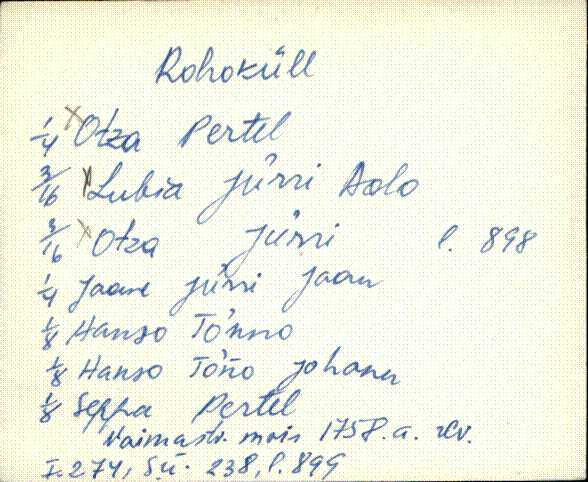 Rohoküll
1/4 x Otza Pertel
3/16 x Lubia Jürri Aolo
3/16 x Otza Jürri l. 898
1/4 Jaani Jürri Jaan
1/8 Hanso Tönno
1/8 Hanso Töño Johann
1/8 Seppa Pertel
Vaimastv. mois 1758. a. rev.
I. 274, S.ü. 238, l. 899